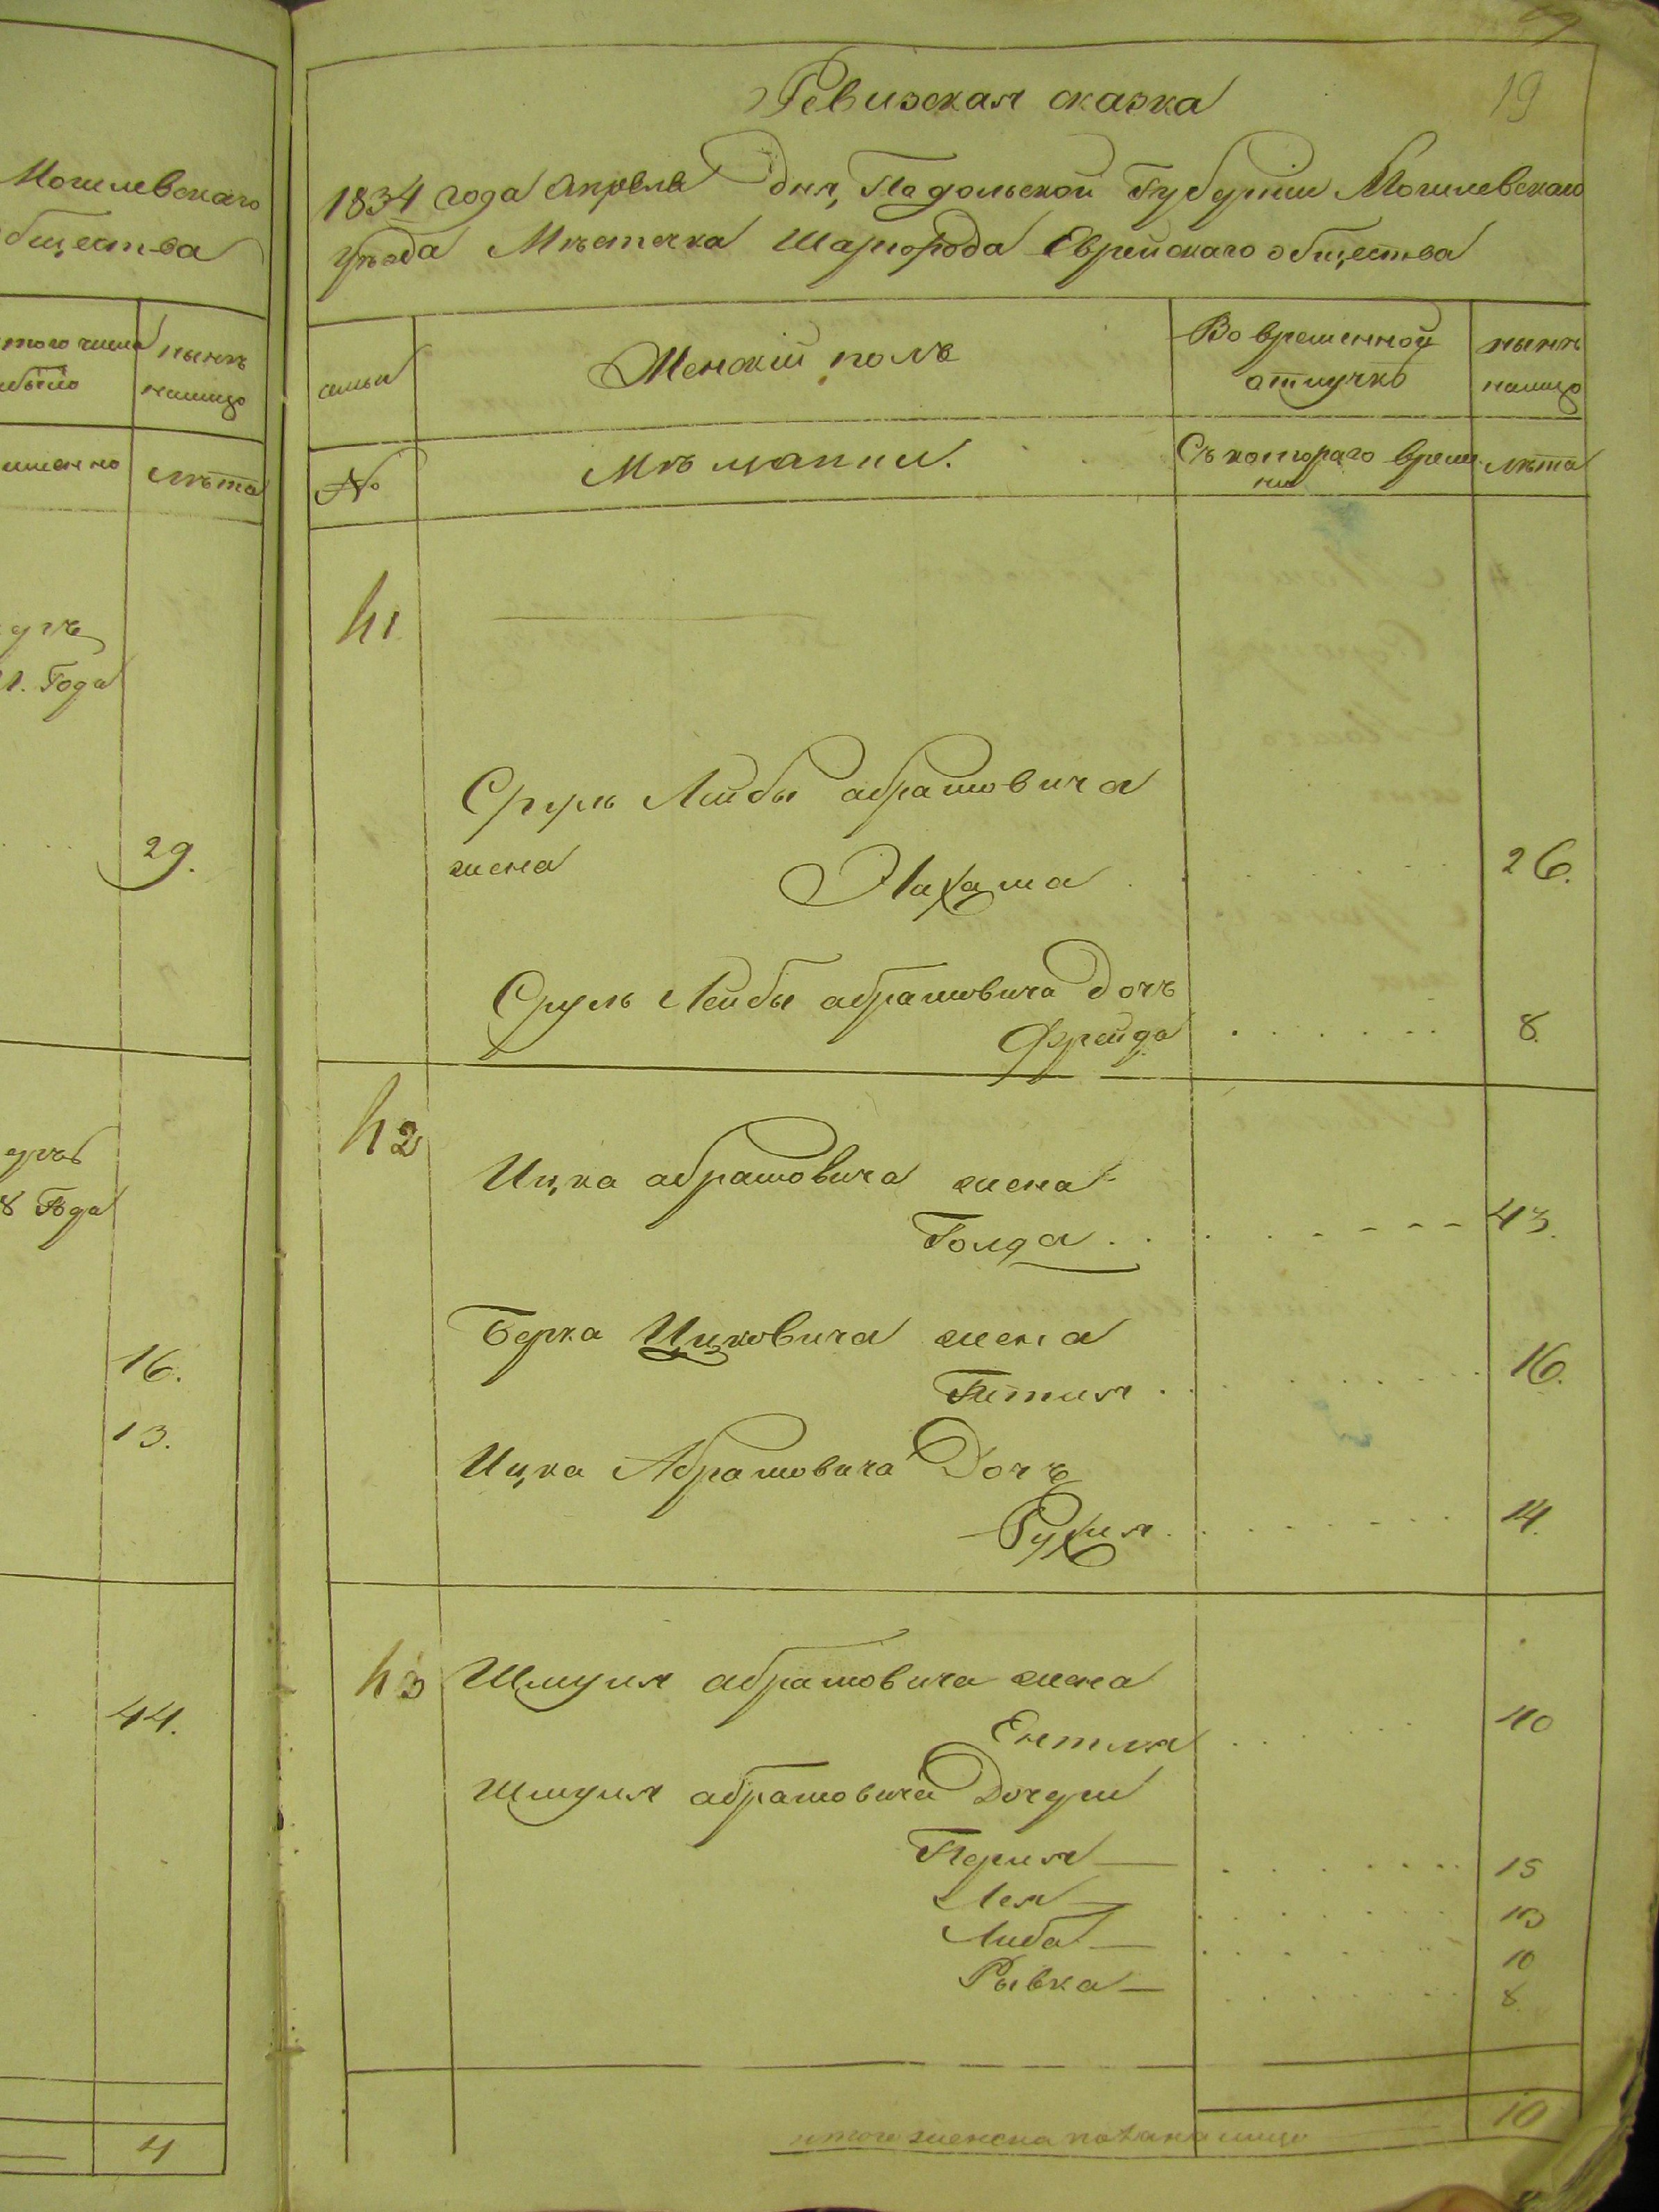 Могилевскаго
бщества
того числа
было
нынѣ
налицо
именно
лѣта
1. Года
29.
8 Года
16.
13.
44.
4
19
Ревизская сказка
1834 года Апреля дня, Подольской Губерніи Могилевскаго
уѣзда Мѣстечка Шаргорода Еврейскаго общества
семьи
Женскій полъ
Во временной
отлучкѣ
нынѣ
налицо
№
Мѣщанил.
Съ котораго време
ни
лѣта
41
Сруль Лейбы абрамовича
жена
Нахама
26.
Сруль Лейбы абрамовича дочь
Фрейда
8.
42
Ицка абрамовича жена
Голда
43.
Берка Ицковича жена
Петия
16.
Ицка Абрамовича Дочь
Рухля
14.
43
Шмуля абрамовича жена
Ентля
40
Шмуля абрамовича Дочери
Перля
15
Лея
13
Либа
10
Рывка
8
итого женска пола налицо
10